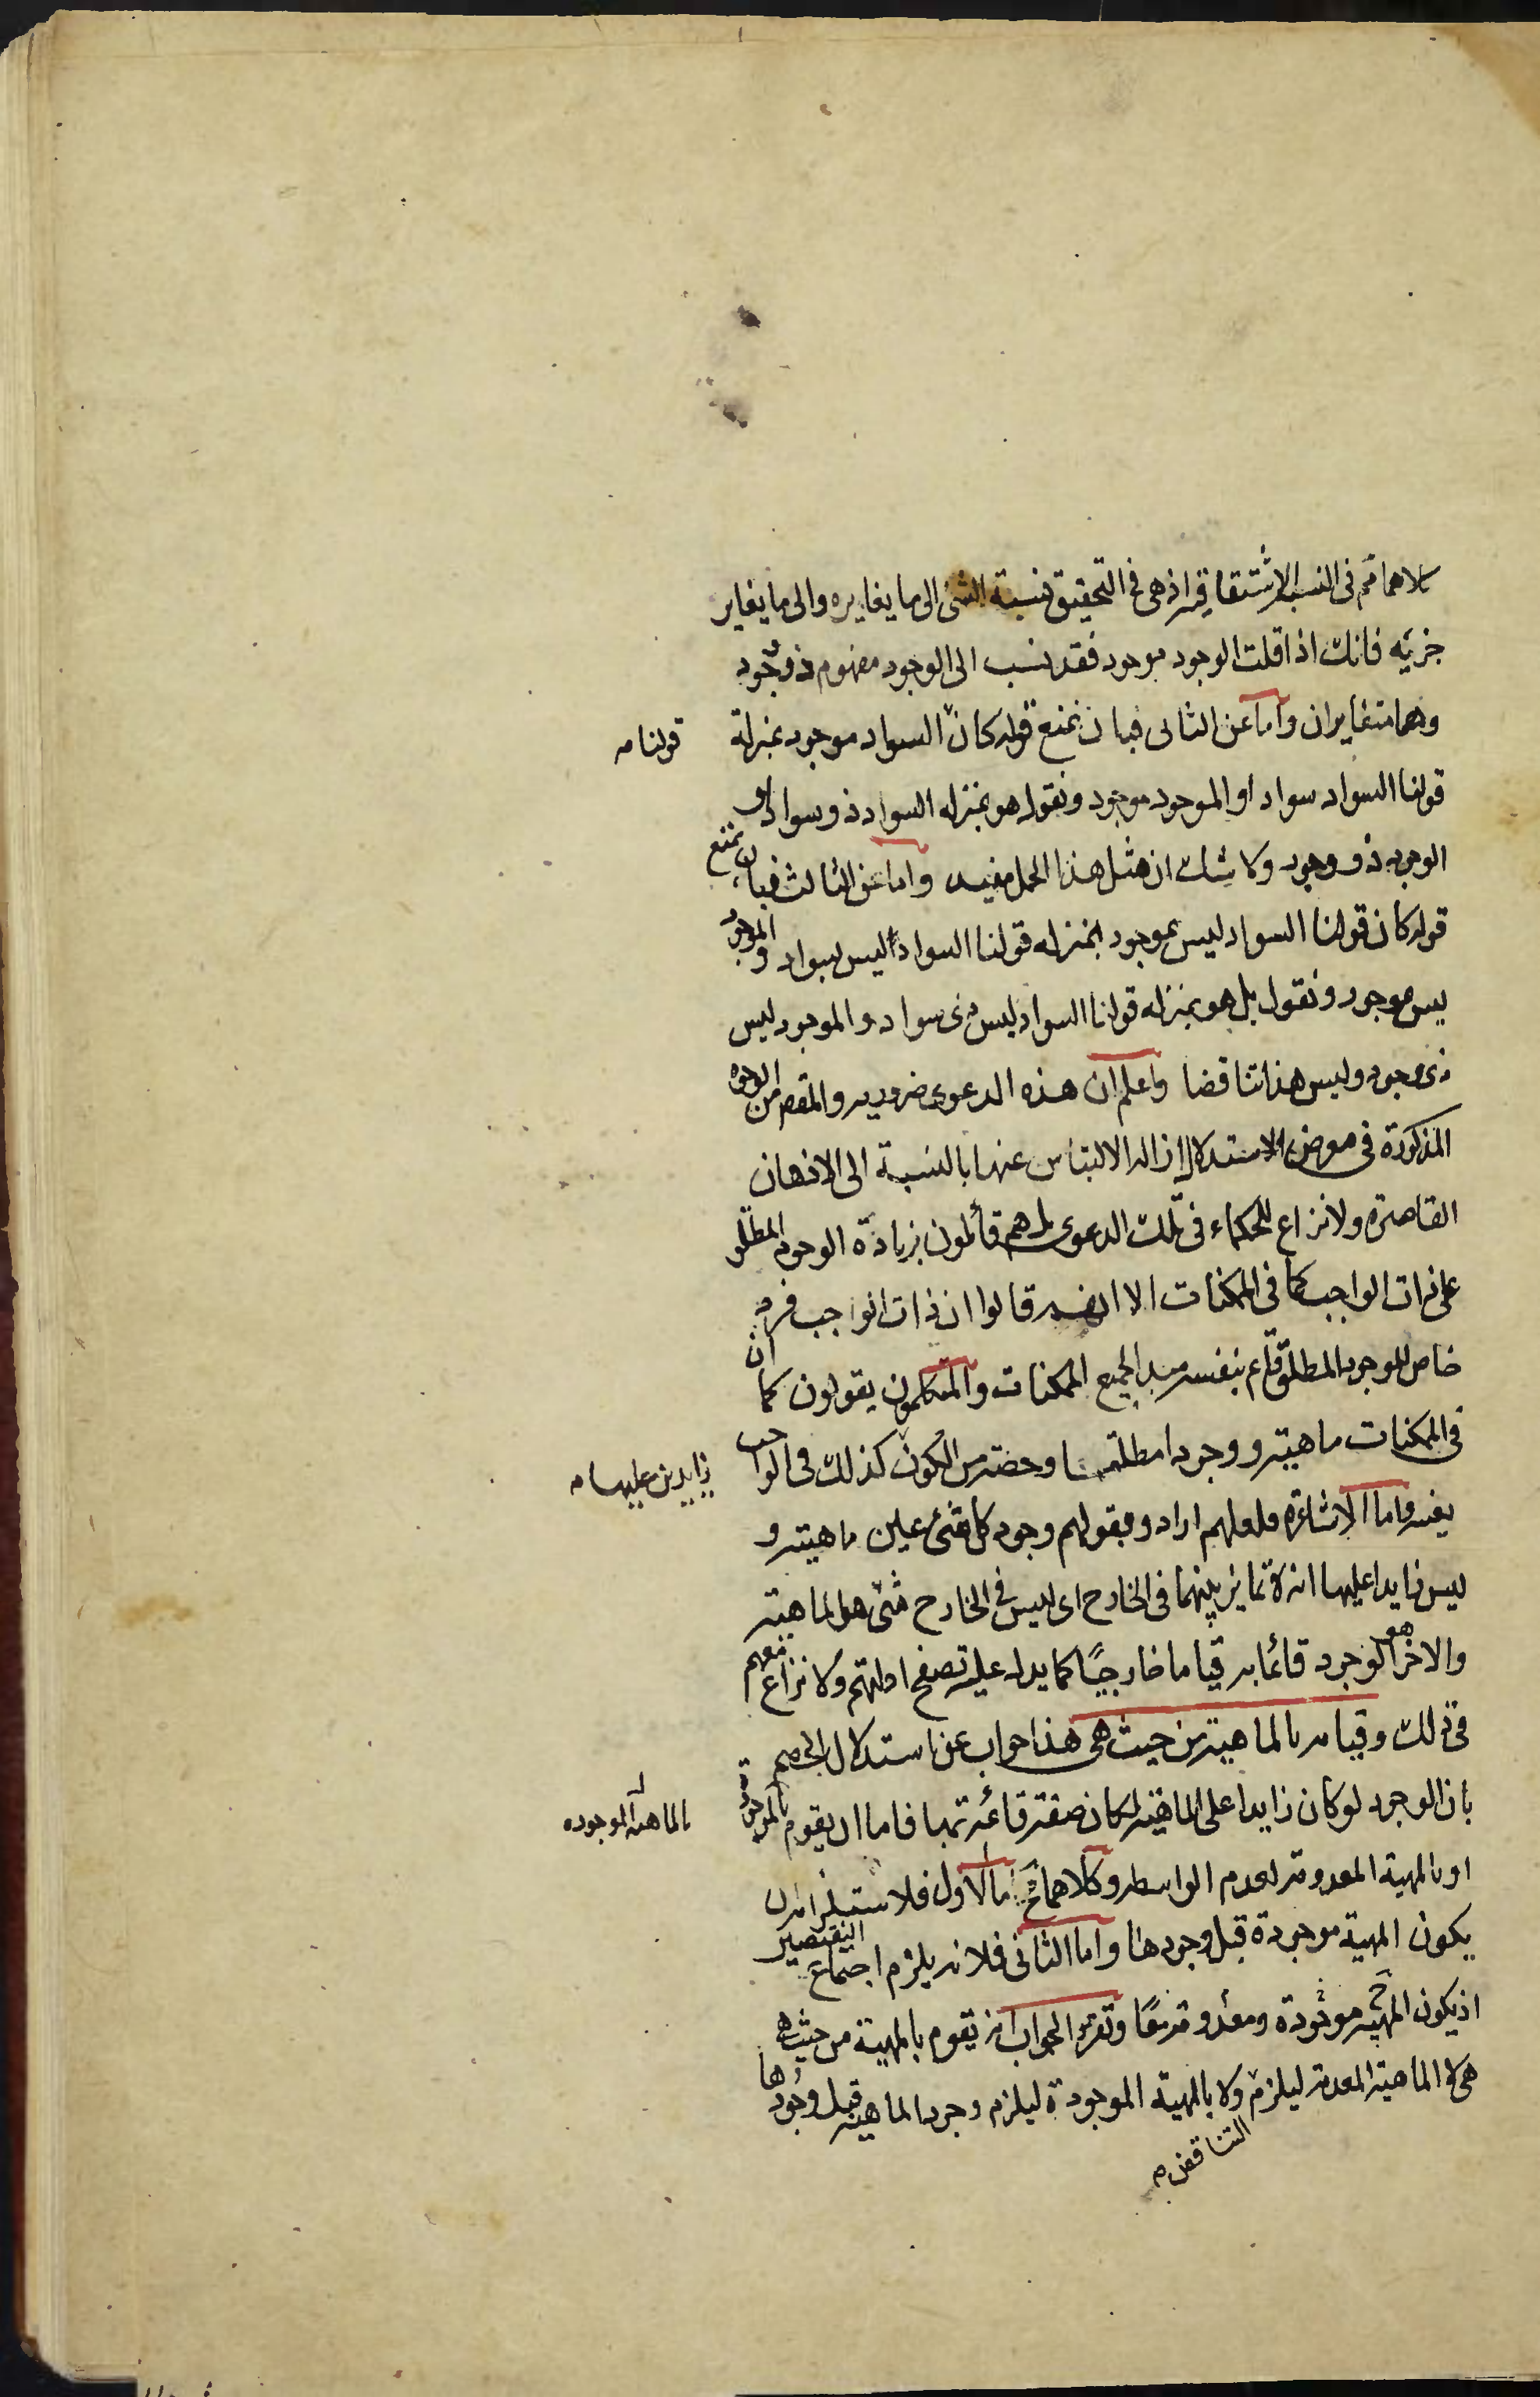 كلاهما ثم فى النسب الاشتقاقية اذ هى فى التحقيق نسبة الشئ الى ما يغايره والى ما يغاير
جزئيه فانك اذا قلت الوجود موجود فقد نسب الى الوجود مفهوم ذو وجود
وهما متغايران واما عن الثانى فبان نمنع قوله كان السواد موجود بمنزلة
قولنا م
قولنا السواد سواد او الموجود موجود ونقول هو بمنزله السواد ذو سواد او
الوجود ذو وجود ولا شك ان مثل هذا الحمل مفيد واما عن الثالث فبان نمنع
قوله كان قولنا السواد ليس بموجود بمنزله قولنا السواد ليس بسواد والموجود
ليس موجود ونقول بل هو بمنزله قولنا السواد ليس ذى سواد والموجود ليس
ذى وجود وليس هذا تناقضا واعلم ان هذه الدعوى ضروريه والمقصم من الوجوه
المذكورة فى معرض الاستدلال ازاله الالتباس عنها بالنسبة الى الاذهان
القاصرة ولا نزاع للحكماء فى تلك الدعوى بل هم قائلون بزيادة الوجود المطلق
على ذات الواجب كما فى الممكنات الا انهم قالوا ان ذات الواجب فرد
خاص للوجود المطلق قائم بنفسه مبدا لجميع الممكنات والمتكلمون يقولون كما ان
فى الممكنات ماهيته ووجودا مطلقا وحصته من الكون كذلك فى الواجب
زايدين عليها م
بعينه واما الاشاعرة فلعلهم ارادوا بقولهم وجود كل شئ عين ماهيته و
ليس زايدا عليها انه لا تمايز بينهما فى الخارج اى ليس فى الخارج شئ هو الماهية
والاخر هو الوجود قائما به قياما خارجيا كما يدل عليه تصفح ادلتهم ولا نزاع معهم
فى ذلك وقيامه بالماهية من حيث هى هذا جواب عن استدلال الخصم
بان الوجود لو كان زايدا على الماهية لكان صفة قائمة بها فاما ان يقوم بالموجودة
بالماهية الموجوده
او بالمهية المعدومة لعدم الواسطه وكلاهما مح اما الاول فلاستلزامه ان
يكون المهية موجودة قبل وجودها واما الثانى فلانه يلزم اجتماع النقيضين
اذ يكون المهية ح موجودة ومعدومة معا وتقرير الجواب انه يقوم بالمهية من حيث هى
هى لا الماهية المعدومة ليلزم ولا بالمهية الموجودة ليلزم وجود الماهية قبل وجودها
التناقض م